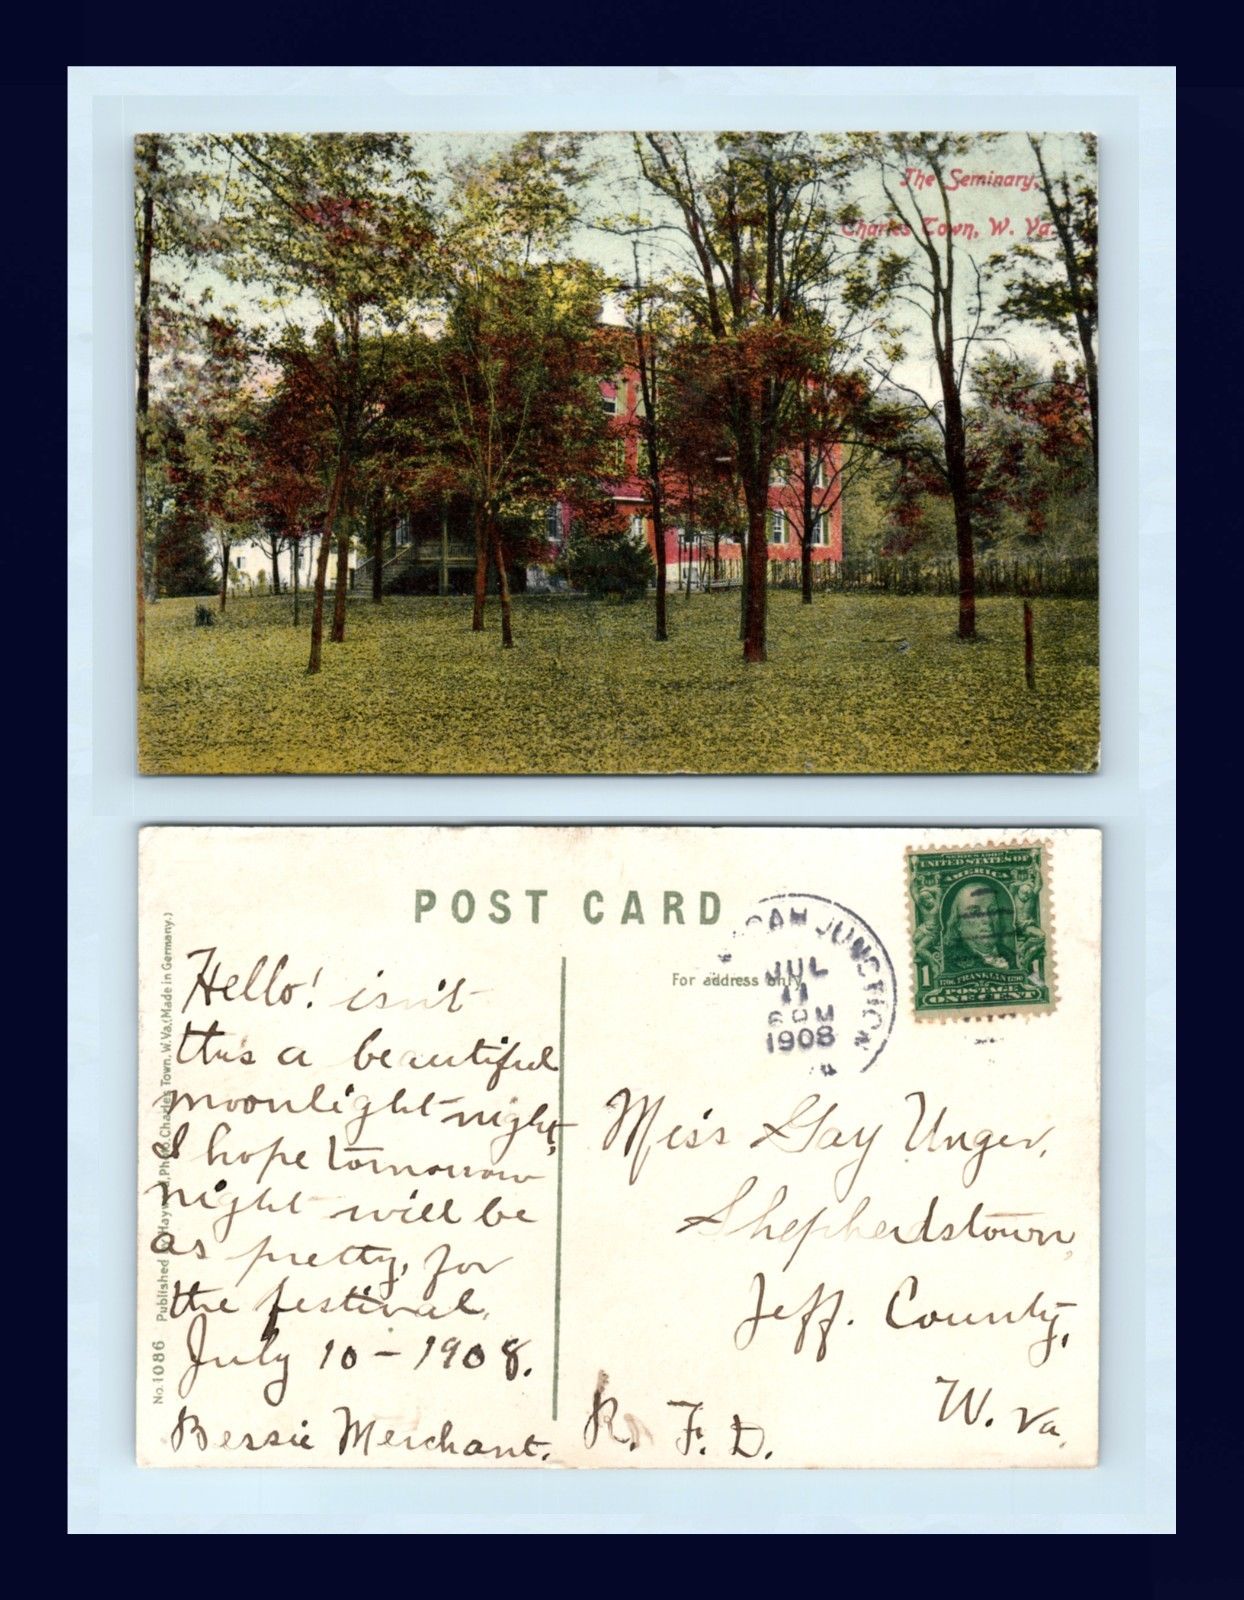 The Seminary,
Charles Town, W. Va.
POST CARD
For address only.
JUNCTION
JUL
11
6 PM
1908
SERIES 1902
UNITED STATES OF
AMERICA
1706 FRANKLIN 1790
1 1
POSTAGE
ONE CENT
No. 1086 Published by Hayward, Photo, Charles Town, W. Va. (Made in Germany.)
Hello! isn't
this a beautiful
moonlight night,
I hope tomorrow
night will be
as pretty, for
the festival.
July 10 - 1908.
Bessie Merchant.
Miss Gay Unger,
Shepherdstown,
Jeff. County,
W. Va.
R. F. D.